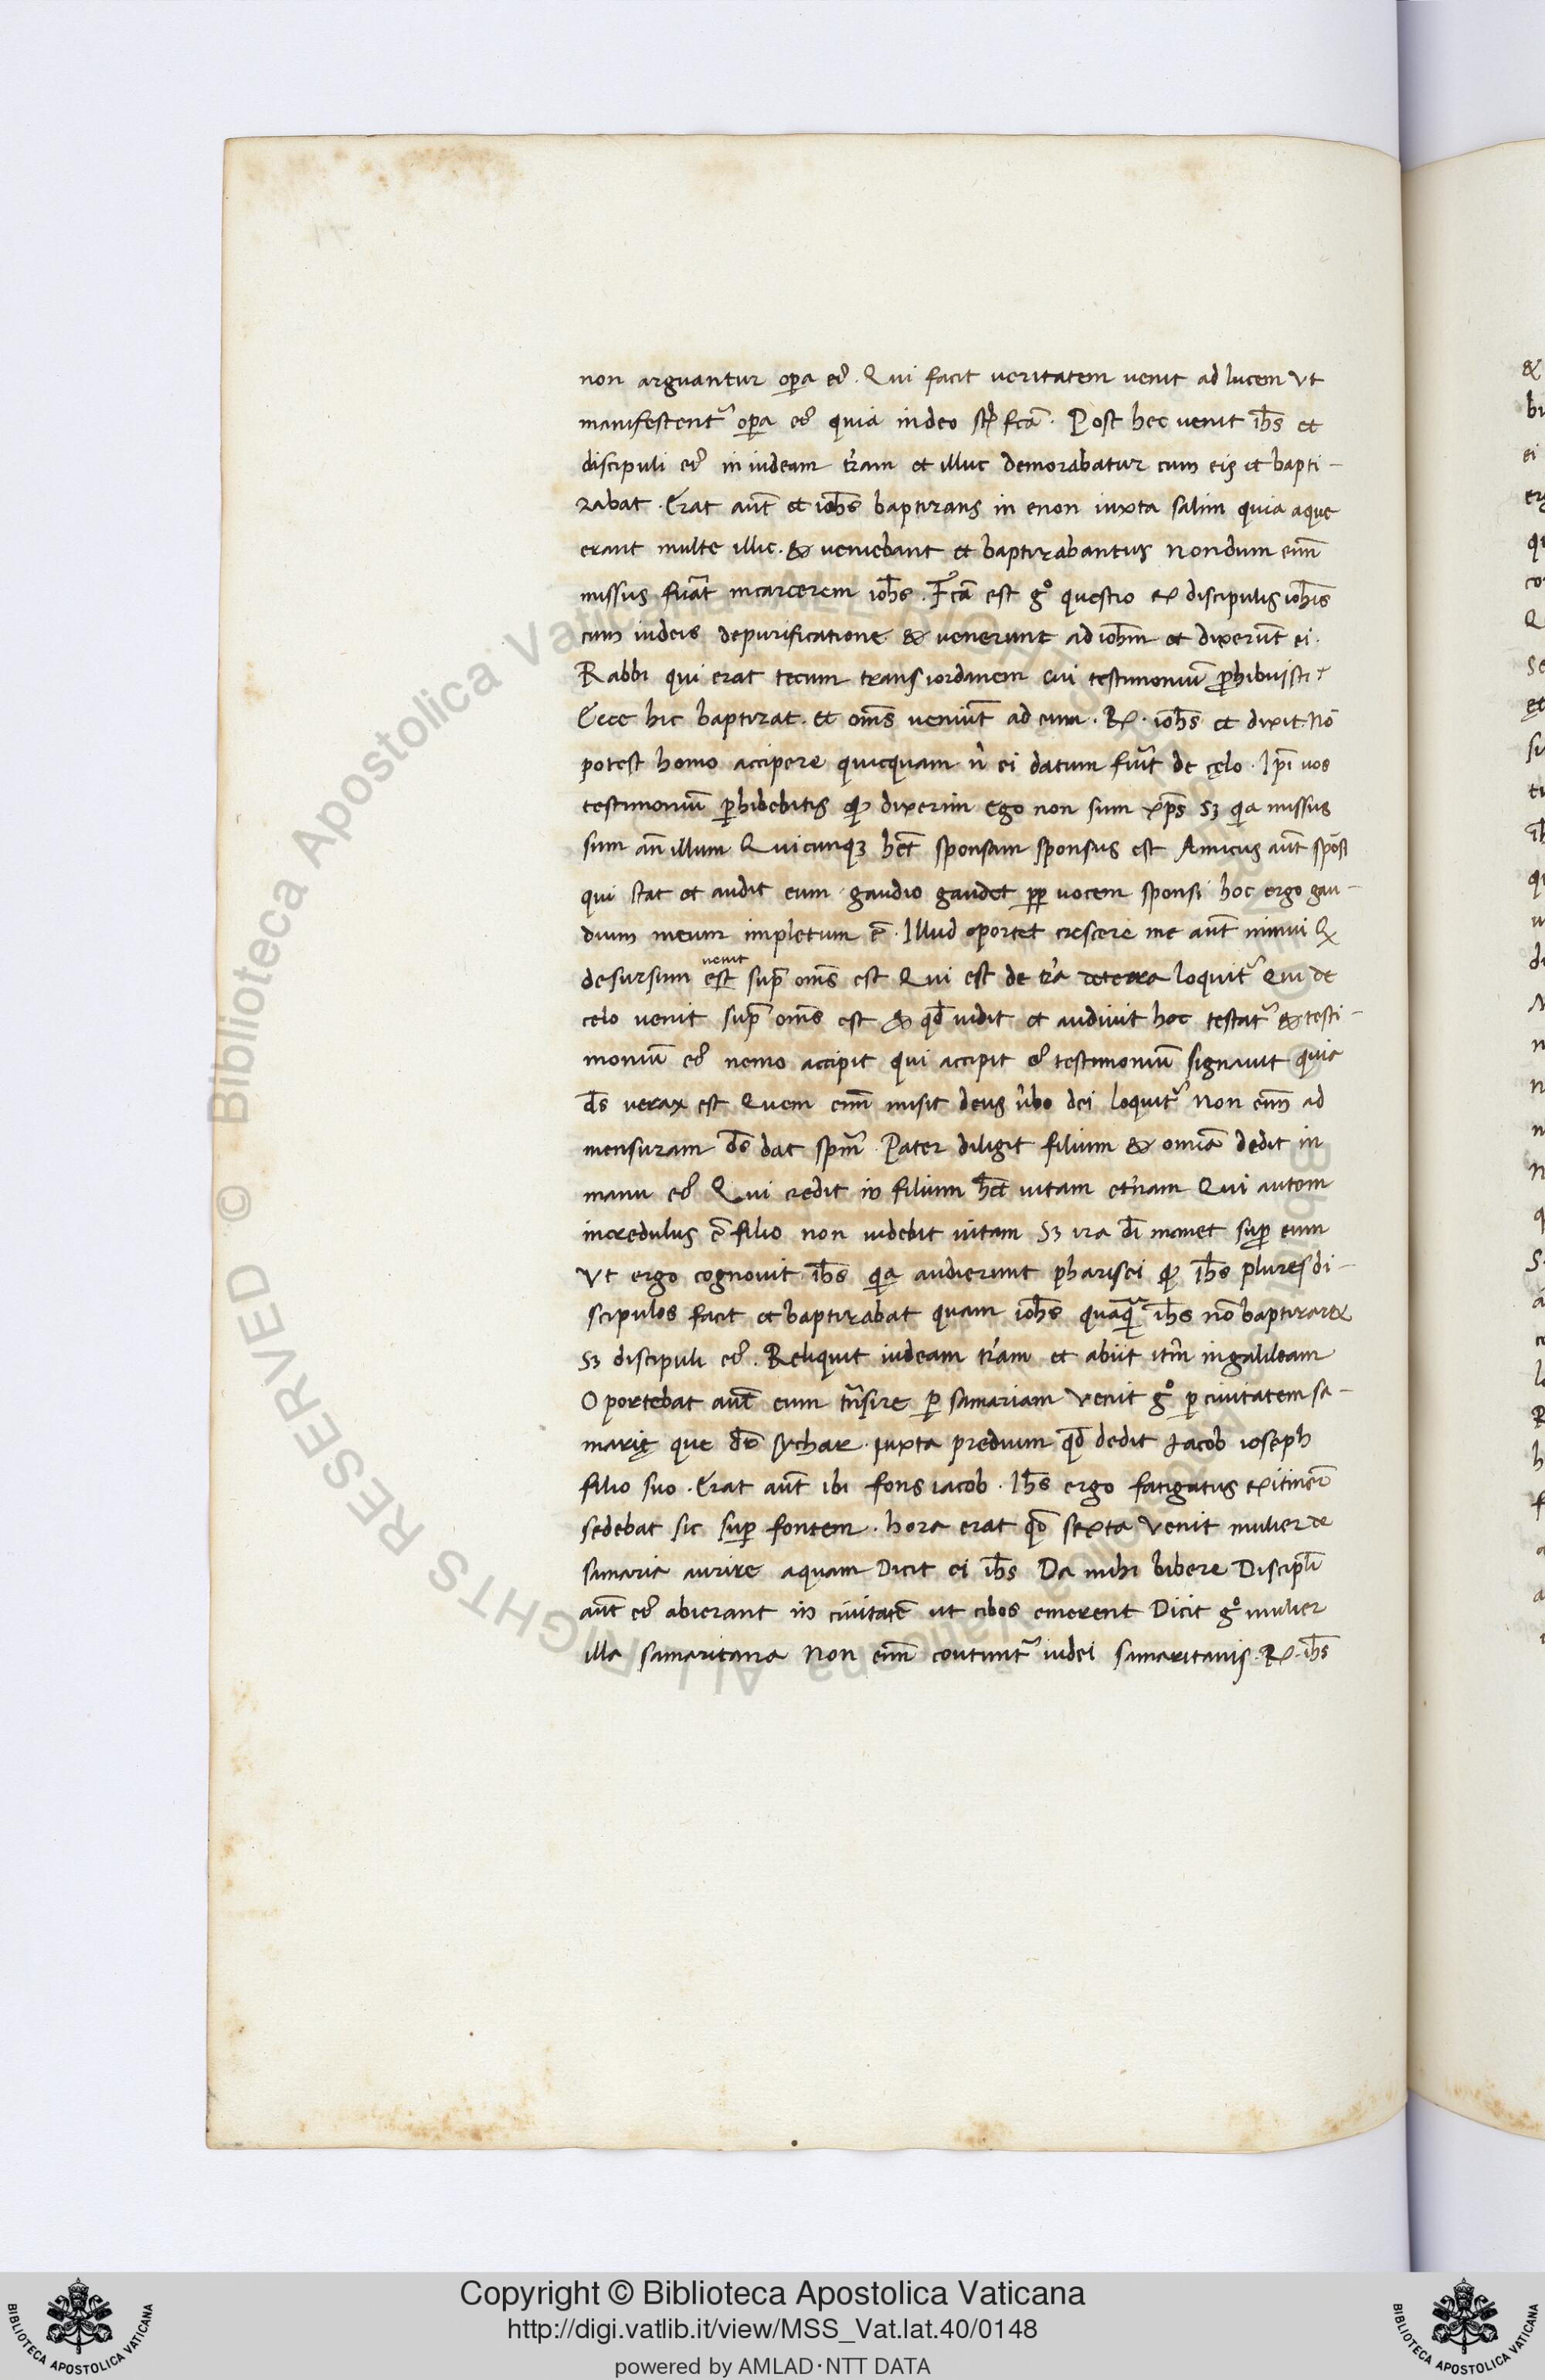 non arguantur opa eꝰ. Qui facit veritatem venit ad lucem Vt
manifestent᷑ opa eꝰ quia in deo st fcā. Post hec venit ih̄s et
discipuli eꝰ in iudeam tr̄am et illuc demorabatur cum eis et bapti-
zabat. Erat aūt et ioh̄s baptizans in enon iuxta salim quia aque
erant multe illic. & veniebant et baptizabantur Nondum eni᷒
missus fu̓at incarcerem ioh̄s. Fc̄a est gͦ questio ex discipulis ioh̄is
cum iudeis depurificatione & venerunt ad ioh̄m et dixerūt ei.
Rabbi qui erat tecum trans iordanem cui testimoniū ꝑhibuisti?
Ecce hic baptizat. et om̄s veniūt ad eum. R̷. ioh̄s et dixit. Nō
potest homo accipere quicquam n̄ ei datum fu̓it de cęlo. Ip̄i vos
testimoniū ꝑhibebitis ꝙ dixerim Ego non sum xp̄s Sꝫ qa missus
sum an̄ illum Quicunqꝫ h̄et sponsam sponsus est Amicus aūt spōsi
qui stat et audit eum gaudio gaudet pp vocem sponsi hoc ergo gau-
dium meum impletum ē. Illud oportet crescere me aūt minui Q
desursum est venit sup̄ om̄s est Qui est de tr̄a de terra loquit᷑ Qui de
celo venit sup̄ om̄s est & qd̄ vidit et audivit hoc testat᷑ & testi-
moniū eꝰ nemo accipit qui accipit eꝰ testimoniū signavit quia
d̄s verax est Quem eni᷒ misit deus v̓bo dei loquit᷑ Non eni᷒ ad
mensuram d̄s dat spm̄. Pater diligit filium & omīa dedit in
manu eꝰ Qui credit in filium h̄et vitam et̓nam Qui autem
incredulus ē filio non videbit vitam Sꝫ ira dī manet suꝑ eum
Vt ergo cognovit ih̄s qa audierunt pharisei ꝙ ih̄s plures di-
scipulos facit et baptizabat quam ioh̄s quaqᷓ ih̄s nō baptizaret
Sꝫ discipuli eꝰ. Reliquit iudeam tr̄am et abiit itm̄ in galileam
Oportebat aūt eum tn̄sire ꝑ samariam Venit gͦ ꝑ civitatem sa-
marię que d̄r sychar. iuxta predium qd̄ dedit iacob ioseph
filio suo. Erat aūt ibi fons iacob. Ih̄s ergo fatigatus ex itiner̄
sedebat sic suꝑ fontem. hora erat qō sexta Venit mulier de
samaria aurire aquam Dicit ei ih̄s Da mihi bibere Discipl̄i
aūt eꝰ abierant in civitatē ut cibos emerent Dicit gͦ mulier
illa samaritana Non eni᷒ coutunt᷑ iudei samaritanis. R̷. ih̄s
Copyright © Biblioteca Apostolica Vaticana
http://digi.vatlib.it/view/MSS_Vat.lat.40/0148
powered by AMLAD·NTT DATA
BIBLIOTECA APOSTOLICA VATICANA
BIBLIOTECA APOSTOLICA VATICANA